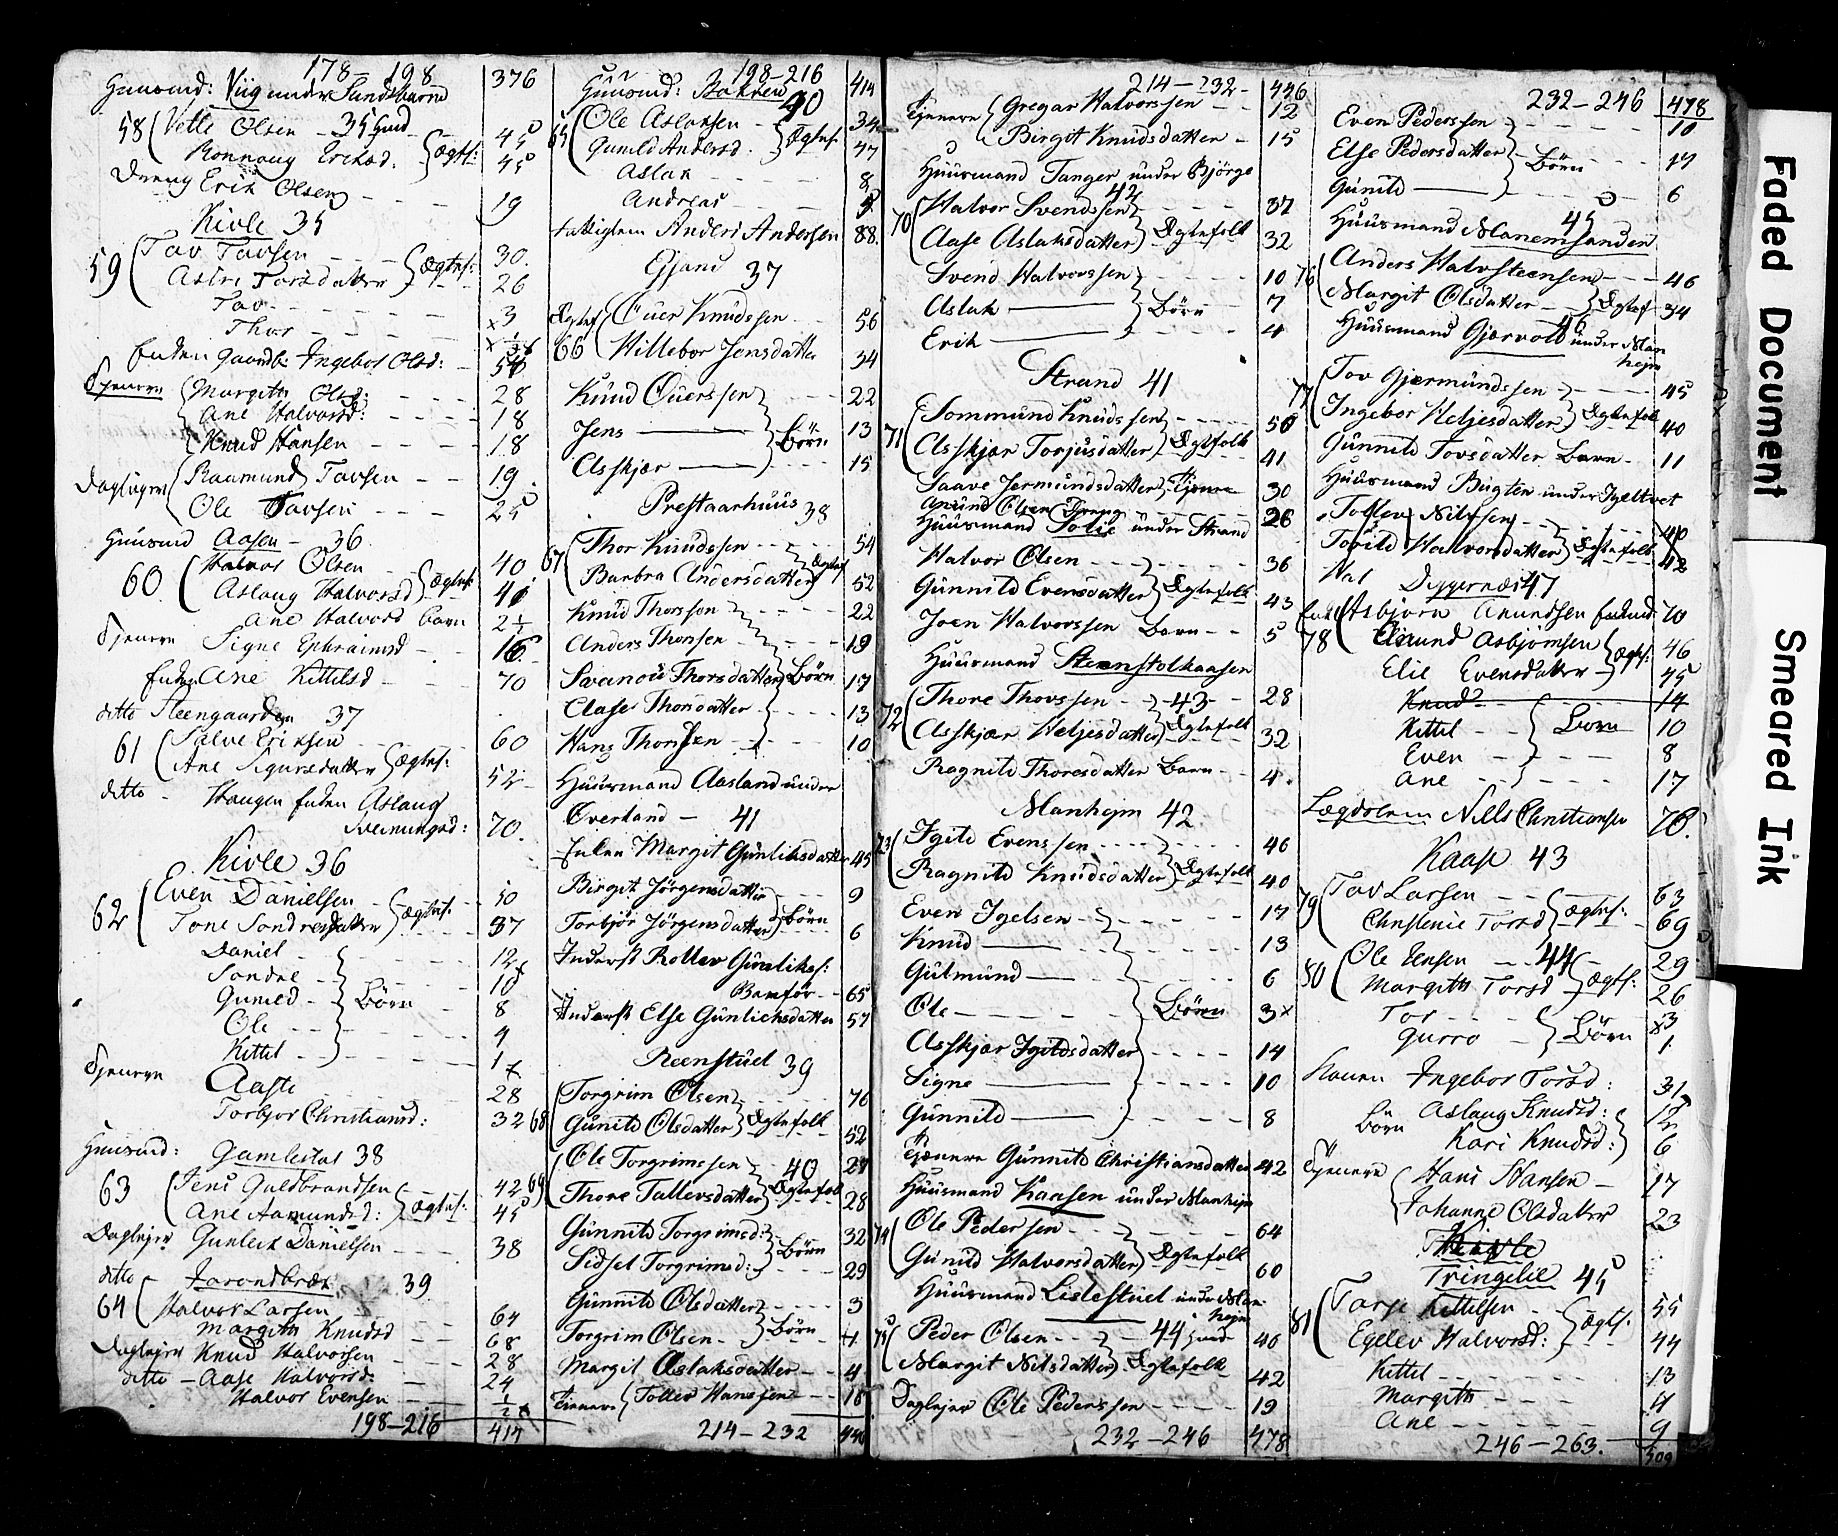 178-198 376
Huusmd: Viig under Sundsbarm
58 Vetle Olsen - 35 Huusd 45
Ronnaug Eriksd. Ægtf: 45
Dreng Erik Olsen 19
Kivle 35
59 Tov Tovsen 30.
Astri Torsdatter Ægtef: 26
Tov x3
Thor
Enken Ingebor Olsd: 50
Tjenere Margith Olsd: 28
Ane Halvorsd: 18
Knud Hansen 18
Daglejere Raamund Tovsen 19
Ole Tovsen 25
Huusmd Aasen - 36
60 Halvor Olsen 40
Aslaug Halvorsd Ægtef: 41
Ane Halvorsd barn 2½
Tjenere Signe Ephraimsd 16
Enken Ane Kittilsd 70
ditto Steengaarden 37
61 Salve Eriksen 60
Ane Sigursdatter Ægtef: 52
ditto - Haugen Enken Aslaug
Sveinungsd: 70.
Kivle 36
62 Even Danielsen 50
Tone Sondresdatter Ægtef: 37
Daniel 12
Sondre 10
Gunild Börn 8
Ole 4
Kittel 1
Tjenere Aaste 28
Torbjor Christiansd: 32
Huusmd: Gamlestul 38
63 Jens Guldbrandsen 42
Ane Aamundsd: Ægtef: 45
Daglejer Gunleik Danielsen 38
ditto 39
64 Halvor Larsen 64
Margith Knudsd 68
Daglejer Knud Halvorsen 28
ditto - Aase Halvorsd: 24
Halvor Evensen ½
198-216 414
198-216 414
Huusmd: Bakken 40
65 Ole Aslaksen 34
Gunild Andersd. Ægtef. 47
Aslak 8
Andreas 5
Fattiglem Anders Andersen 88
Gjand 37
Ægtef Ouer Knudssen 56
66 Hillebor Jensdatter 34
Knud Ouerssen 22
Jens Börn 13
Asskjær 15
Prestaarhuus 38
67 Thor Knudssen 54
Barbra Andersdatter Ægtef 52
Knud Thorssen 22
Anders Thorsen 19
Svanou Thorsdatter Börn 17
Aase Thorsdatter 13
Hans Thorssen 10
Huusmand Aasland under
Overland - 41
Enken Margit Gunliksdatter 45
Birgit Jörgensdatter 9
Torbjör Jörgensdatter Börn 6
Inderst Rollev Gunliks:
65
Inderst Else Gunlichsdatter 57
Reenstuel 39
68 Torgrim Olsen 76
Gunild Olsdatter Ægtefolk 52
69 Ole Torgrimssen 40 27
Thore Tallevsdatter Ægtefolk 28
Gunnild Torgrimsd: 32
Sidsel Torgrimsd: Börn 29
Gunnild Olsdatter 3
Torgrim Olsen Börn
Margit Aslaksdatter 4
Tienere Tollev Hanssen 18
214-232 446
214-232 446
Tjenere Gregar Halvorssen 12
Birgit Knudsdatter 15
Huusmand Tanger under Bjørge
42
70 Halvor Svendssen 37
Aase Aslaksdatter Ægtefolk 32
Svend Halvorssen 10
Aslak Börn 7
Erik 4
Strand 41
71 Sommund Knudssen 50
Asskjær Torjusdatter Ægtefolk 41
Saave Jermundsdatter Tjener 30
Amund Olsen Dreng
Huusmand Solie under Strand 26
Halvor Olsen 36
Gunnild Evensdatter Ægtefolk 43
Joen Halvorssen Barn 5
Huusmand Steenstolhaasen
72 Thore Thorssen 43 28
Asskjær Heljesdatter Ægtefolk 32
Ragnild Thoresdatter Barn 4
Manhejm 42
73 Igild Evenssen 46
Ragnild Knudsdatter Ægtefolk 40
Even Igelsen 17
Knud 13
Gulmund 6
Ole Börn 3x
Asskjær Igildsdatter 14
Signe 10
Gunnild 8
Tjænere Gunnild Christiansdatter 42
Huusmand Kaasen under Manhejm
74 Ole Pedersen 64
Gunild Halvorsdatter Ægtefolk 60
Huusmand Lislestuel under Man
hejm
75 Peder Olsen 44 Huusd 46
Margit Nilsdatter Ægtefolk 42
Daglejer Ole Pederssen 19
232-246 478
232-246 478
Even Pederssen 10
Else Pedersdatter Börn 17
Gunild 6
45
Huusmand Manemsanden
76 Anders Halvsteensen 46
Margit Olsdatter Ægtef 34
46
Huusmand Gjærvold under Man
hejm
77 Tov Gjermundssen 45
Ingebor Heljesdatter Ægtefolk 40
Gunnild Tovsdatter Barn 11
Huusmand Bugten under Igeltvet
Tollev Nilssen 40
Torild Halvorsdatter Ægtefolk 42
Diggernæs 47
Asbjørn Anundsen 70
78 Anund Asbjørnsen 46
Elie Evensdatter Ægtf: 45
Knud 14
Kittel Børn 10
Even 8
Ane 17
Lægdslem Nils Christiansen 76.
Kaase 43
79 Tov Larsen 63
Christenie Torsd Ægtef: 69
80 Ole Jensen 44 29
Margith Torsd Ægtf: 26
Tor x3
Gurro Börn 1
Ingebor Torsd: 31
Börn Aslaug Knudsd: 12
Kari Knudsd: 6
Tjenere Hans Hansen 17
Johanne Olsdatter 23
Tringelie 45
81 Tarje Kittilsen 55
Egelev Halvorsd: Ægtf: 44
Kittel 13
Margith 4
Ane 9
246-263. 509
Faded Document
Smeared Ink